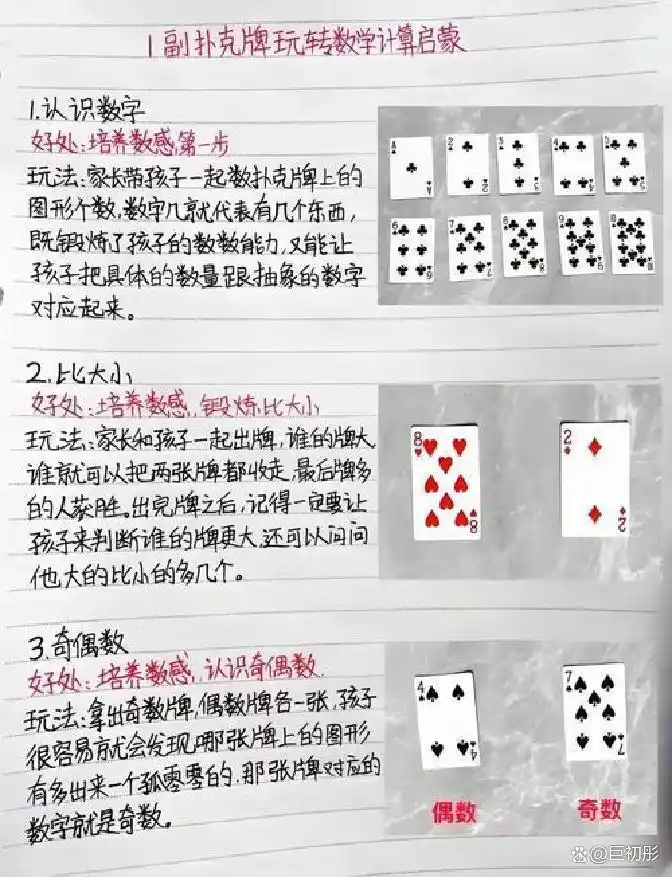 1副扑克牌玩转数学计算启蒙
1.认识数字
好处:培养数感,第一步
玩法:家长带孩子一起数扑克牌上的
图形个数,数字几就代表有几个东西,
既锻炼了孩子的数数能力,又能让
孩子把具体的数量跟抽象的数字
对应起来。
A 2 3 4 5
6 7 8 9
2.比大小
好处:培养数感,锻炼比大小
玩法:家长和孩子一起出牌,谁的牌大
谁就可以把两张牌都收走,最后牌多
的人获胜。出完牌之后,记得一定要让
孩子来判断谁的牌更大,还可以问问
他大的比小的多几个。
8 2
8 2
3.奇偶数
好处:培养数感,认识奇偶数.
玩法:拿出奇数牌,偶数牌各一张,孩子
很容易就会发现,哪张牌上的图形
有多出来一个孤零零的,那张牌对应的
数字就是奇数。
4 7
4 7
偶数 奇数
百度@巨初彤